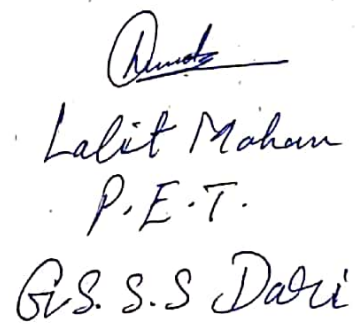 Lalit Mohan
P.E.T.
G.S.S.S Dari